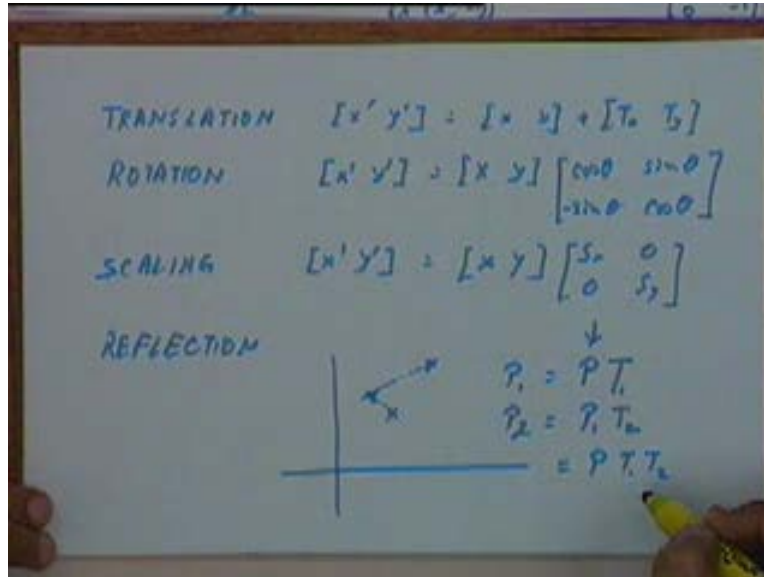 TRANSLATION [x' y'] = [x y] + [Tx Ty]
ROTATION [x' y'] = [x y] [cosθ sinθ
-sinθ cosθ]
SCALING [x' y'] = [x y] [Sx 0
0 Sy]
REFLECTION
↓
P1 = P T1
P2 = P1 T2
= P T1 T2